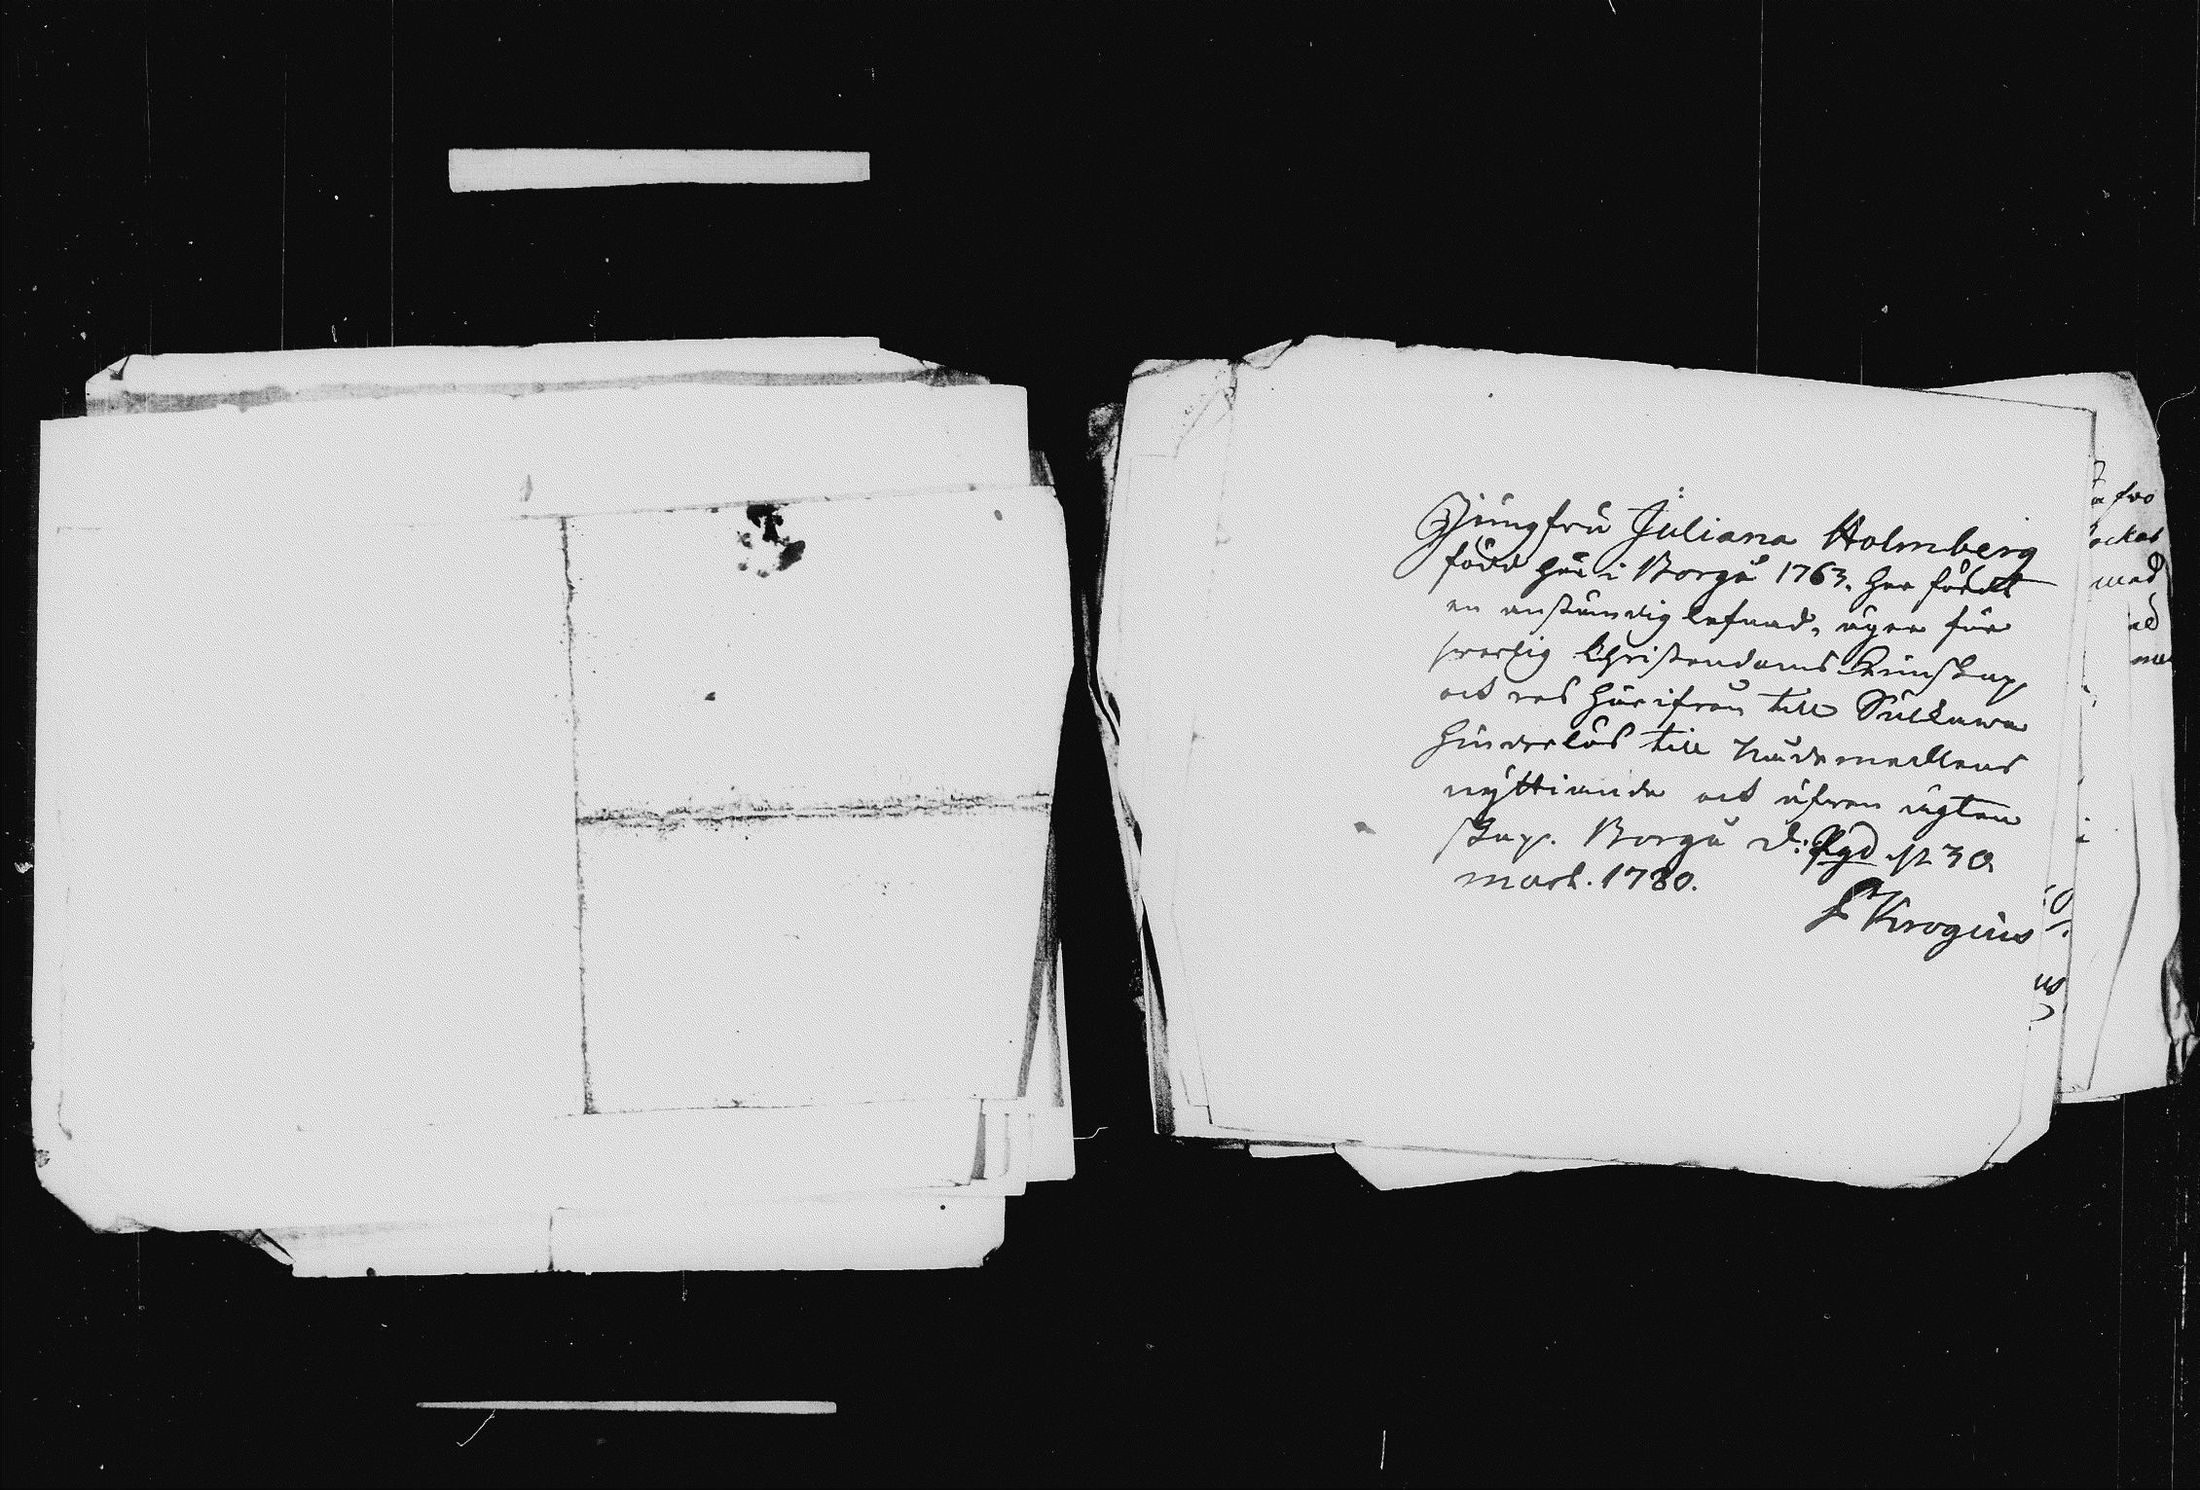 Jungfru Juliana Holmberg
född här i Borgå 1763. har fördt
en anständig lefnad, äger för
swarlig Christendoms kunskap,
och res härifrån till Sulkawa
hinderlös till Nådemedlens
nyttiande och äfwen ägten
skap. Borgå d: 30
mart. 1780.
Krogius